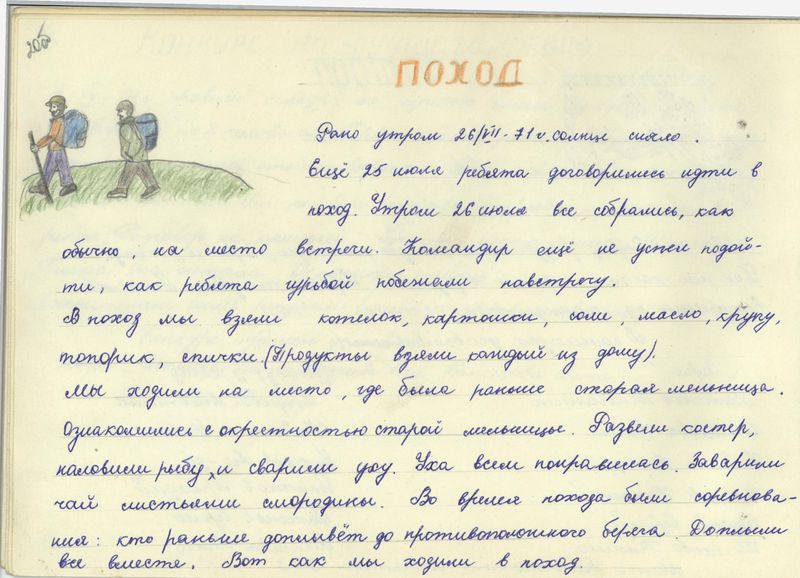 205
ПОХОД
Рано утром 26/VII-71 г. солнце сияло.
Ещё 25 июля ребята договорились идти в
поход. Утром 26 июля все собрались, как
обычно, на место встречи. Командир ещё не успел подой-
ти, как ребята гурьбой побежали навстречу.
В поход мы взяли котелок, картошки, соли, масло, крупу,
топорик, спички. (Продукты взяли каждый из дому).
Мы ходили на место, где была раньше старая мельница.
Ознакомились с окрестностью старой мельницы. Развели костер,
наловили рыбу, и сварили уху. Уха всем понравилась. Заварили
чай листьями смородины. Во время похода были соревнова-
ния: кто раньше доплывёт до противоположного берега. Доплыли
все вместе. Вот как мы ходили в поход.